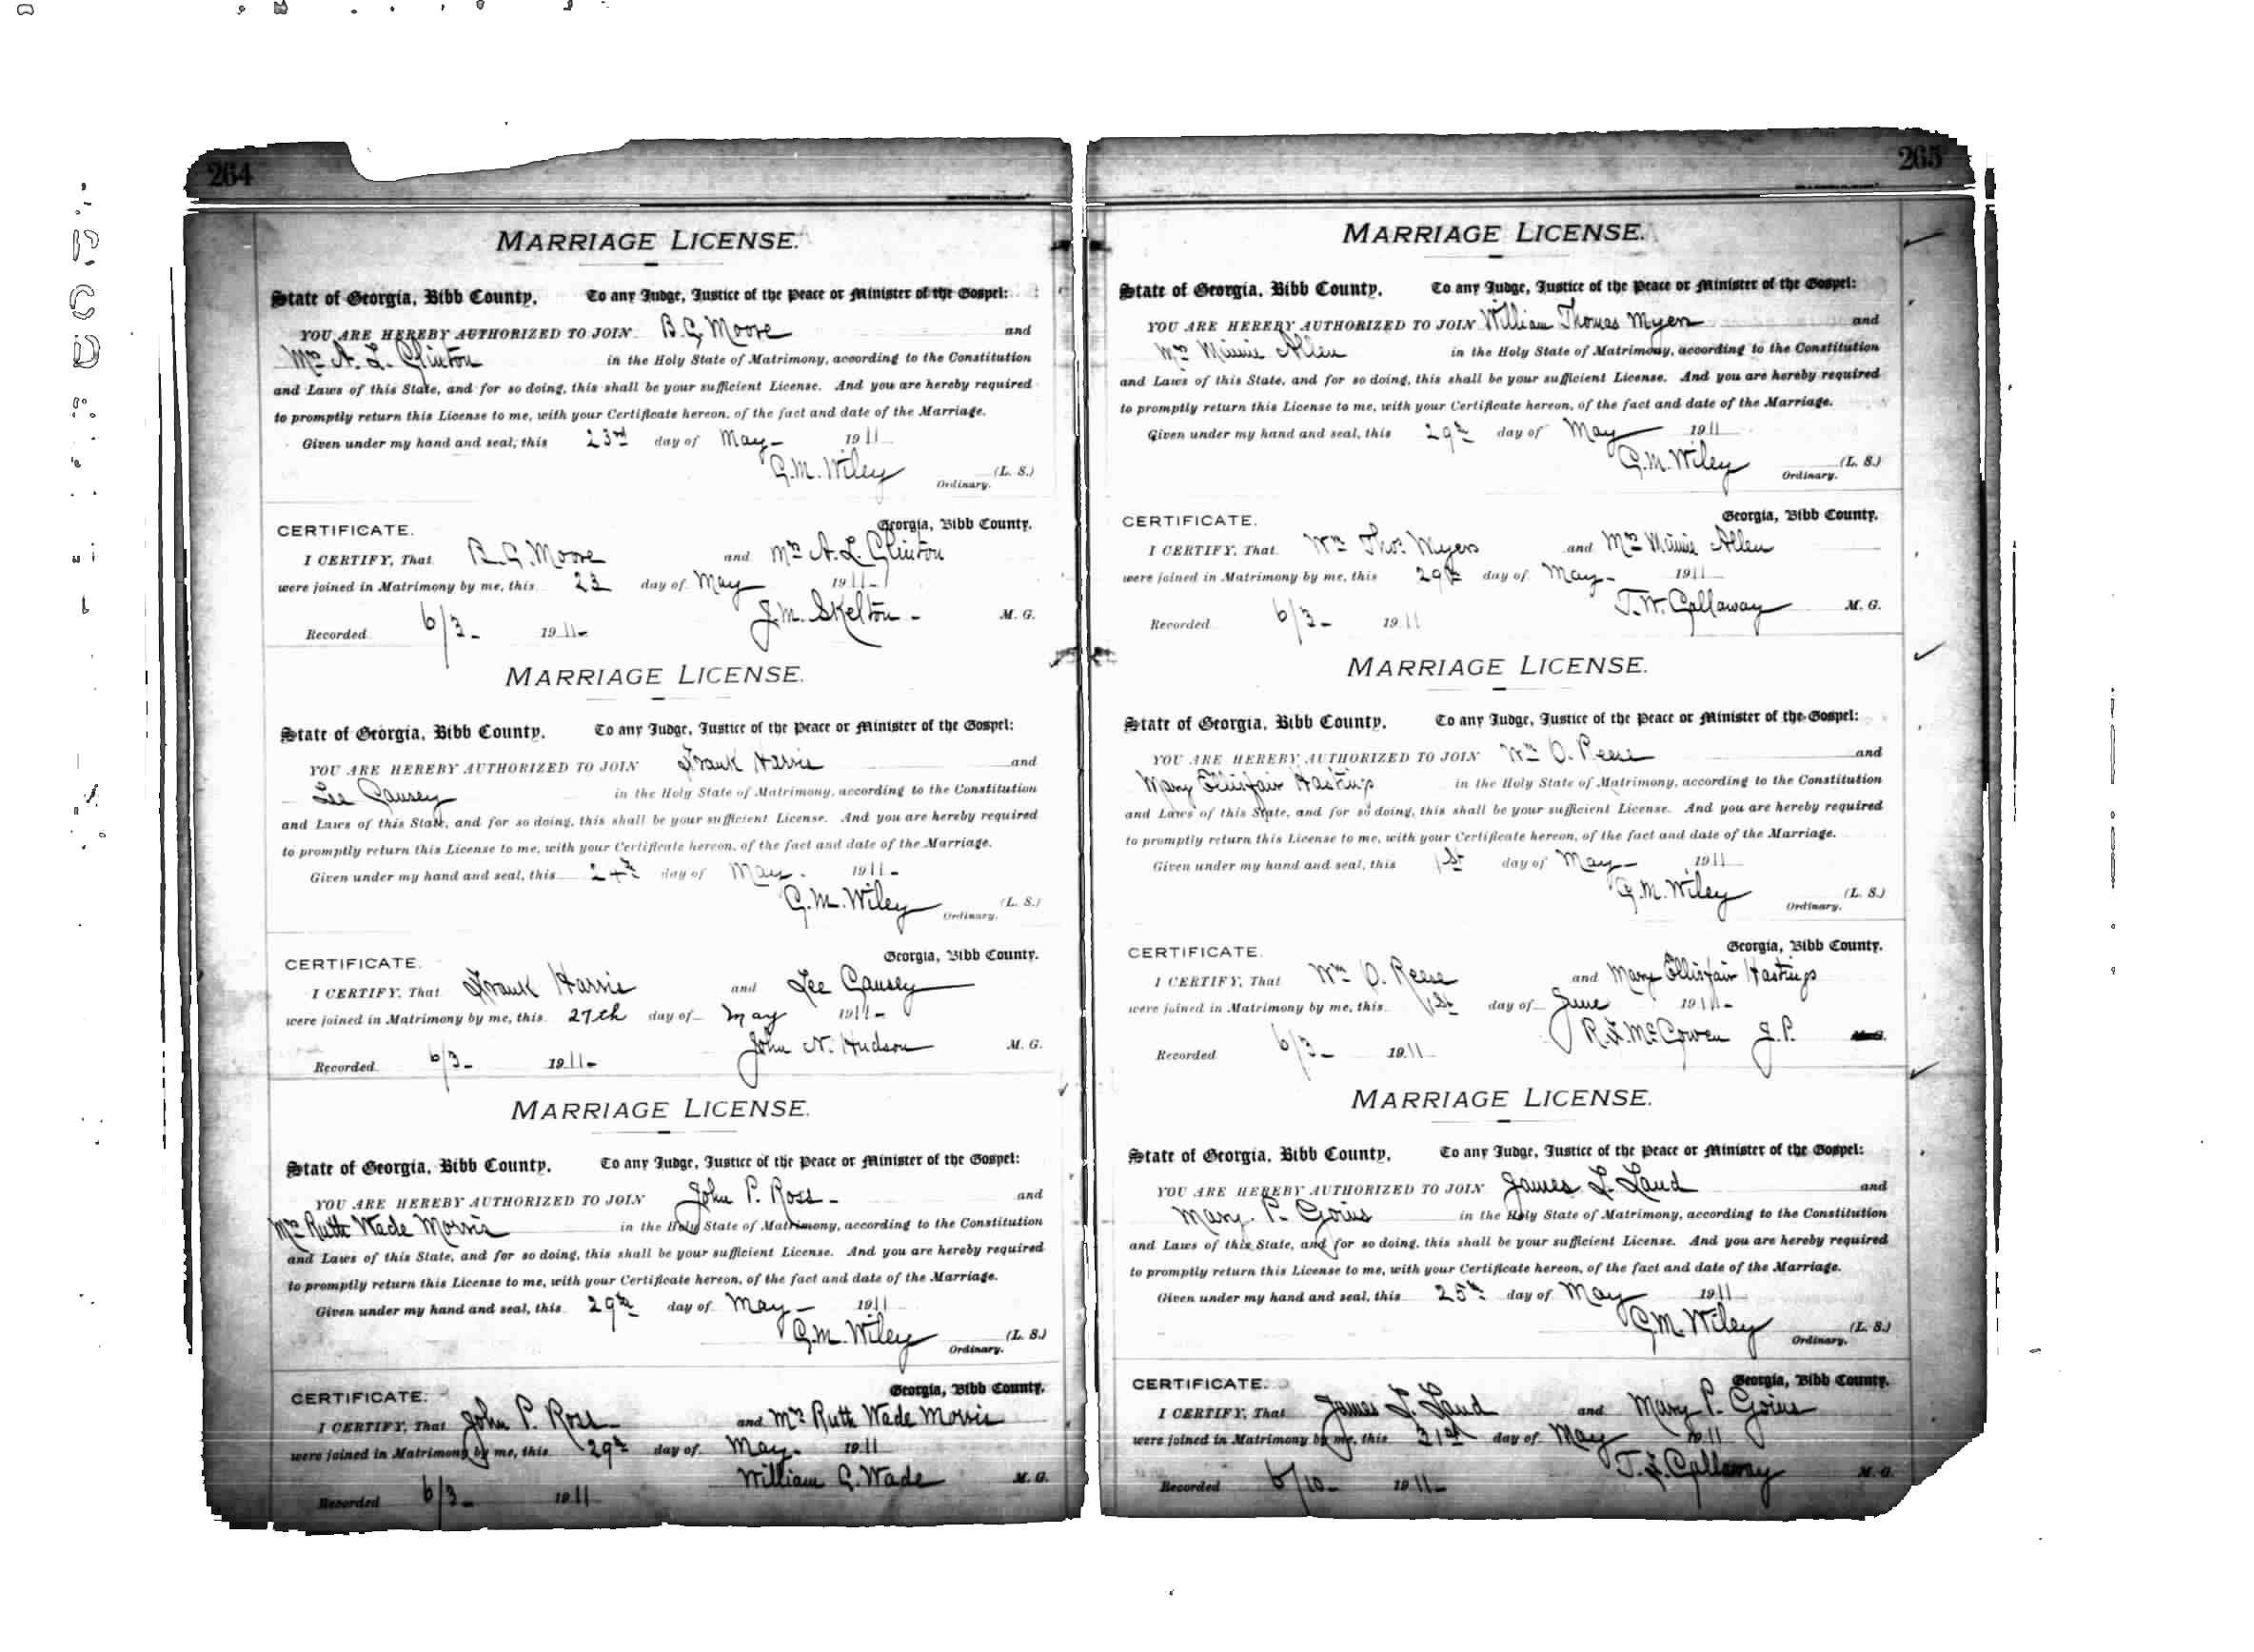 264
MARRIAGE LICENSE.
State of Georgia, Bibb County. To any Judge, Justice of the Peace or Minister of the Gospel:
YOU ARE HEREBY AUTHORIZED TO JOIN B. G. Moore and
Mrs A. L. Clinton in the Holy State of Matrimony, according to the Constitution
and Laws of this State, and for so doing, this shall be your sufficient License. And you are hereby required
to promptly return this License to me, with your Certificate hereon, of the fact and date of the Marriage.
Given under my hand and seal, this 23rd day of May 1911
G. M. Wiley (L. S.)
Ordinary.
CERTIFICATE. Georgia, Bibb County.
I CERTIFY, That B. G. Moore and Mrs A. L. Clinton
were joined in Matrimony by me, this 23 day of May 1911
J. M. Skelton M. G.
Recorded 6/3 1911
MARRIAGE LICENSE.
State of Georgia, Bibb County. To any Judge, Justice of the Peace or Minister of the Gospel:
YOU ARE HEREBY AUTHORIZED TO JOIN Frank Harris and
Lee Causey in the Holy State of Matrimony, according to the Constitution
and Laws of this State, and for so doing, this shall be your sufficient License. And you are hereby required
to promptly return this License to me, with your Certificate hereon, of the fact and date of the Marriage.
Given under my hand and seal, this 24th day of May 1911
G. M. Wiley (L. S.)
Ordinary.
CERTIFICATE. Georgia, Bibb County.
I CERTIFY, That Frank Harris and Lee Causey
were joined in Matrimony by me, this 27th day of May 1911
John N. Hudson M. G.
Recorded 6/3 1911
MARRIAGE LICENSE.
State of Georgia, Bibb County. To any Judge, Justice of the Peace or Minister of the Gospel:
YOU ARE HEREBY AUTHORIZED TO JOIN John P. Ross and
Mrs Ruth Wade Morris in the Holy State of Matrimony, according to the Constitution
and Laws of this State, and for so doing, this shall be your sufficient License. And you are hereby required
to promptly return this License to me, with your Certificate hereon, of the fact and date of the Marriage.
Given under my hand and seal, this 29th day of May 1911
G. M. Wiley (L. S.)
Ordinary.
CERTIFICATE. Georgia, Bibb County.
I CERTIFY, That John P. Ross and Mrs Ruth Wade Morris
were joined in Matrimony by me, this 29th day of May 1911
William G. Wade M. G.
Recorded 6/3 1911
265
MARRIAGE LICENSE.
State of Georgia, Bibb County. To any Judge, Justice of the Peace or Minister of the Gospel:
YOU ARE HEREBY AUTHORIZED TO JOIN William Thomas Myers and
Mrs Minnie Allen in the Holy State of Matrimony, according to the Constitution
and Laws of this State, and for so doing, this shall be your sufficient License. And you are hereby required
to promptly return this License to me, with your Certificate hereon, of the fact and date of the Marriage.
Given under my hand and seal, this 29th day of May 1911
G. M. Wiley (L. S.)
Ordinary.
CERTIFICATE. Georgia, Bibb County.
I CERTIFY, That Wm Thos. Myers and Mrs Minnie Allen
were joined in Matrimony by me, this 29th day of May 1911
T. W. Callaway M. G.
Recorded 6/3 1911
MARRIAGE LICENSE.
State of Georgia, Bibb County. To any Judge, Justice of the Peace or Minister of the Gospel:
YOU ARE HEREBY AUTHORIZED TO JOIN Wm O. Reese and
Mary Hastings in the Holy State of Matrimony, according to the Constitution
and Laws of this State, and for so doing, this shall be your sufficient License. And you are hereby required
to promptly return this License to me, with your Certificate hereon, of the fact and date of the Marriage.
Given under my hand and seal, this 1st day of May 1911
G. M. Wiley (L. S.)
Ordinary.
CERTIFICATE. Georgia, Bibb County.
I CERTIFY, That Wm O. Reese and Mary Hastings
were joined in Matrimony by me, this 1st day of June 1911
R. F. McCowen J. P.
Recorded 6/3 1911
MARRIAGE LICENSE.
State of Georgia, Bibb County. To any Judge, Justice of the Peace or Minister of the Gospel:
YOU ARE HEREBY AUTHORIZED TO JOIN James L. Land and
Mary P. Goins in the Holy State of Matrimony, according to the Constitution
and Laws of this State, and for so doing, this shall be your sufficient License. And you are hereby required
to promptly return this License to me, with your Certificate hereon, of the fact and date of the Marriage.
Given under my hand and seal, this 25th day of May 1911
G. M. Wiley (L. S.)
Ordinary.
CERTIFICATE. Georgia, Bibb County.
I CERTIFY, That James L. Land and Mary P. Goins
were joined in Matrimony by me, this 31st day of May 1911
T. F. Callaway M. G.
Recorded 6/10 1911